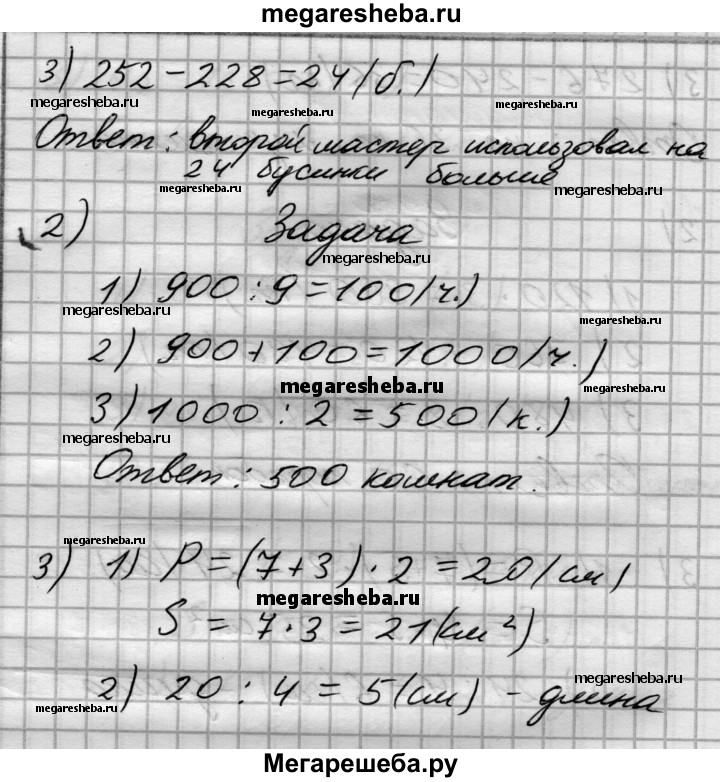 megaresheba.ru
3) 252 - 228 = 24 (б.)
megaresheba.ru megaresheba.ru megaresheba.ru
Ответ: второй мастер использовал на
24 бусинки больше
megaresheba.ru megaresheba.ru
2) Задача
megaresheba.ru
1) 900 : 9 = 100 (ч.)
megaresheba.ru megaresheba.ru
2) 900 + 100 = 1000 (ч.)
megaresheba.ru megaresheba.ru
3) 1000 : 2 = 500 (к.)
megaresheba.ru
Ответ: 500 комнат.
megaresheba.ru
3) 1) P = (7 + 3) · 2 = 20 (см)
megaresheba.ru
S = 7 · 3 = 21 (см²)
megaresheba.ru
2) 20 : 4 = 5 (см) - длина
megaresheba.ru megaresheba.ru
Мегарешеба.ру